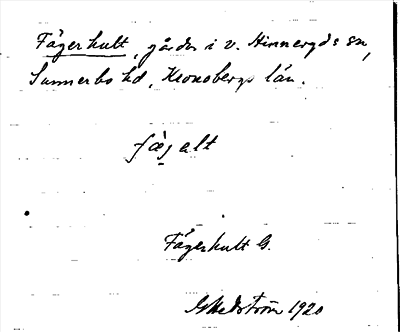 Fägerhult, gårdar i v. Hinneryds sn,
Sunnerbo hd, Kronobergs län.
fäg alt
Fägerhult G.
1920